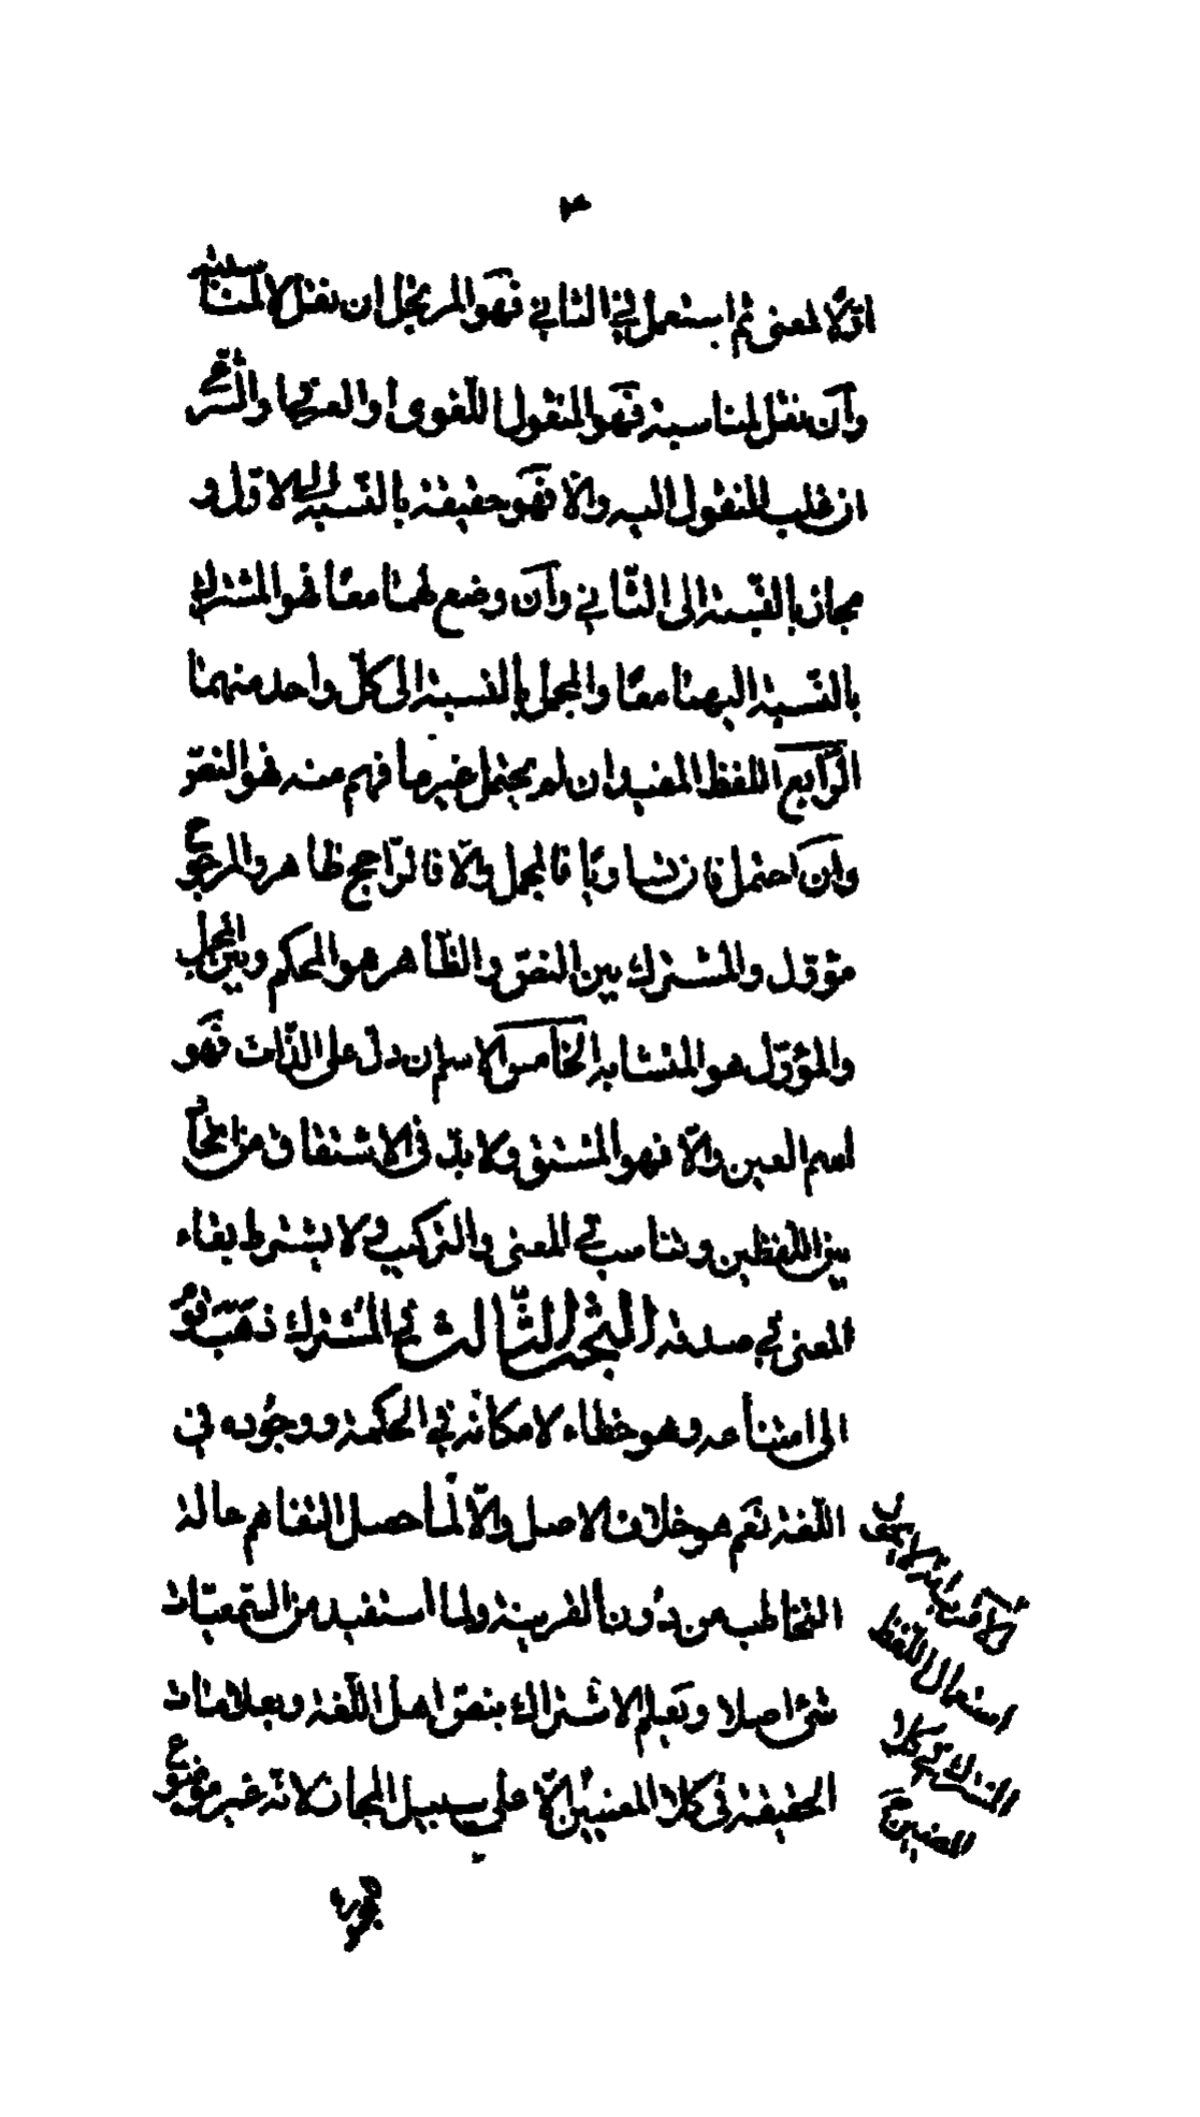 ٣
اوّلا لمعنى ثم استعمل في الثاني فهو المرتجل ان نقل لا لمناسبة
وان نقل لمناسبة فهو المنقول اللّغوى او العرفى او الشرعى
ان غلب المنقول اليه والّا فهو حقيقة بالنّسبة الى الاوّل و
مجاز بالنّسبة الى الثّاني وان وضع لهما معًا فهو المشترك
بالنّسبة اليهما معًا والمجمل بالنسبة الى كلّ واحد منهما
الرّابع اللفظ المفيد ان لم يحتمل غير ما فهم منه فهو النصّ
وان احتمل فان تساويا فالمجمل والّا فالرّاجح ظاهر والمرجوح
مؤوّل والمشترك بين النصّ والظّاهر هو المحكم وبين المجمل
والمؤوّل هو المتشابه الخامس الاسم ان دلّ على الذّات فهو
اسم العين والّا فهو المشتق ولا بدّ في الاشتقاق من اتّحاد
بين اللّفظين وتناسب في المعنى والتركيب ولا يشترط بقاء
المعنى في صدقه البحث الثّالث في المشترك ذهب قوم
الى امتناعه وهو خطاء لامكانه في الحكمة ووجوده في
اللّغة نعم هو خلاف الاصل والّا لما حصل التفاهم حالة
التخاطب من دون القرينة ولما استفيد من السّمعيّات
شئ اصلا ويعلم الاشتراك بنصّ اهل اللّغة وبعلامات
الحقيقة في كلا المعنيين الّا على سبيل المجاز لانّه غير موضوع
والاقرب انه لا يجوز
استعمال اللّفظ
المشترك في كلا
المعنيين